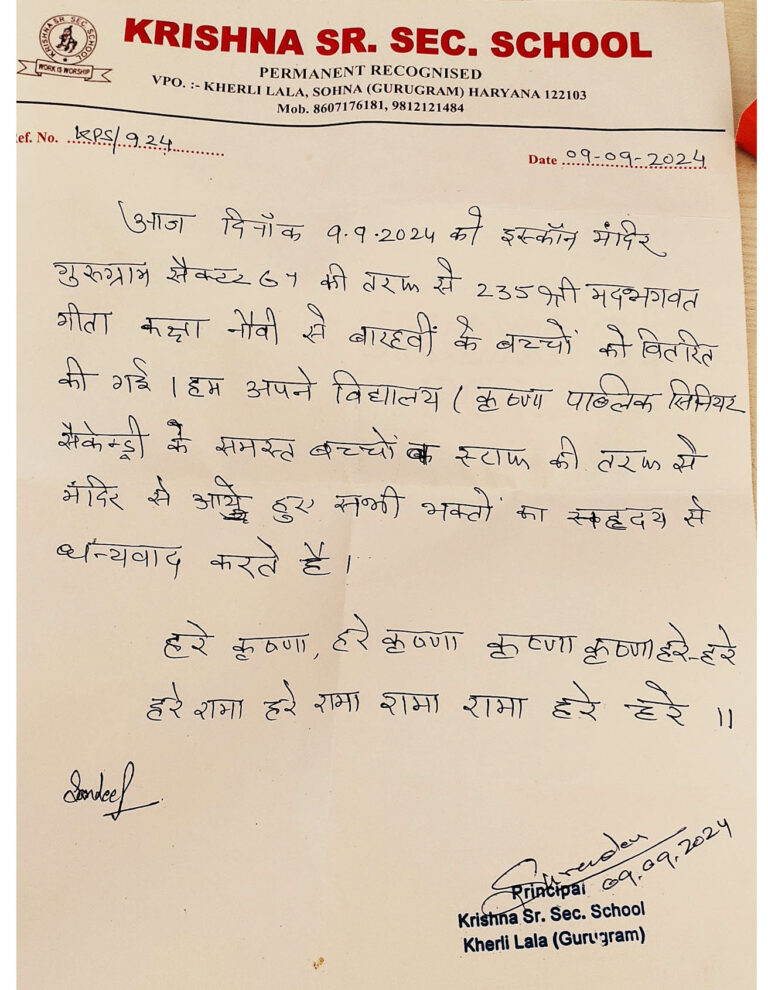 KRISHNA SR. SEC. SCHOOL
WORK IS WORSHIP
KRISHNA SR. SEC. SCHOOL
PERMANENT RECOGNISED
VPO. :- KHERLI LALA, SOHNA (GURUGRAM) HARYANA 122103
Mob. 8607176181, 9812121484
ef. No. KPS/924
Date 09-09-2024
आज दिनाँक 9.9.2024 को इस्कॉन मंदिर
गुरुग्राम सैक्टर 67 की तरफ से 235 श्री मदभगवत
गीता कक्षा नौवी से बारहवीं के बच्चों को वितरित
की गई । हम अपने विद्यालय ( कृष्णा पाब्लिक सिनियर
सैकेन्ड्री के समस्त बच्चों क स्टाफ की तरफ से
मंदिर से आये हुए सभी भक्तों का सहृदय से
धन्यवाद करते है ।
हरे कृष्णा, हरे कृष्णा कृष्णा कृष्णा हरे-हरे
हरे रामा हरे रामा रामा रामा हरे हरे ॥
Sandeep
Surender
09.09.2024
Principal
Krishna Sr. Sec. School
Kherli Lala (Gurugram)